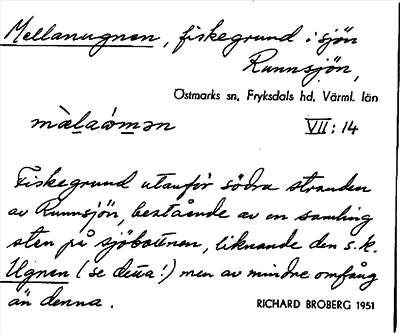 Mellanugnen, fiskegrund i sjön
Runnsjön,
Östmarks sn, Fryksdals hd, Värml. län
VII: 14
Fiskegrund utanför södra stranden
av Runnsjön, bestående av en samling
sten på sjöbottnen, liknande den s.k.
Ugnen (se detta!) men av mindre omfång
än denna.
RICHARD BROBERG 1951